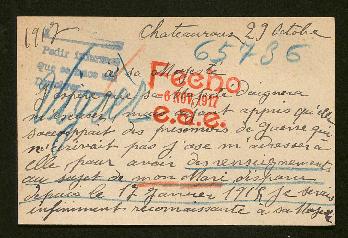 1917 Chateauroux 29 Octobre
65736
Pedir
Que se
à sa Majesté
Fecha
-6 NOV. 1917
e.a.e.
sa Majesté Daignera
appris qu'elle
s'occupait des prisonniers de Guerre qui
n'écrivait pas j'ose m'adresser à
elle pour avoir des renseignements
au sujet de mon Mari disparu
depuis le 17 janvier 1915 je serais
infiniment reconnaissante à sa Majesté